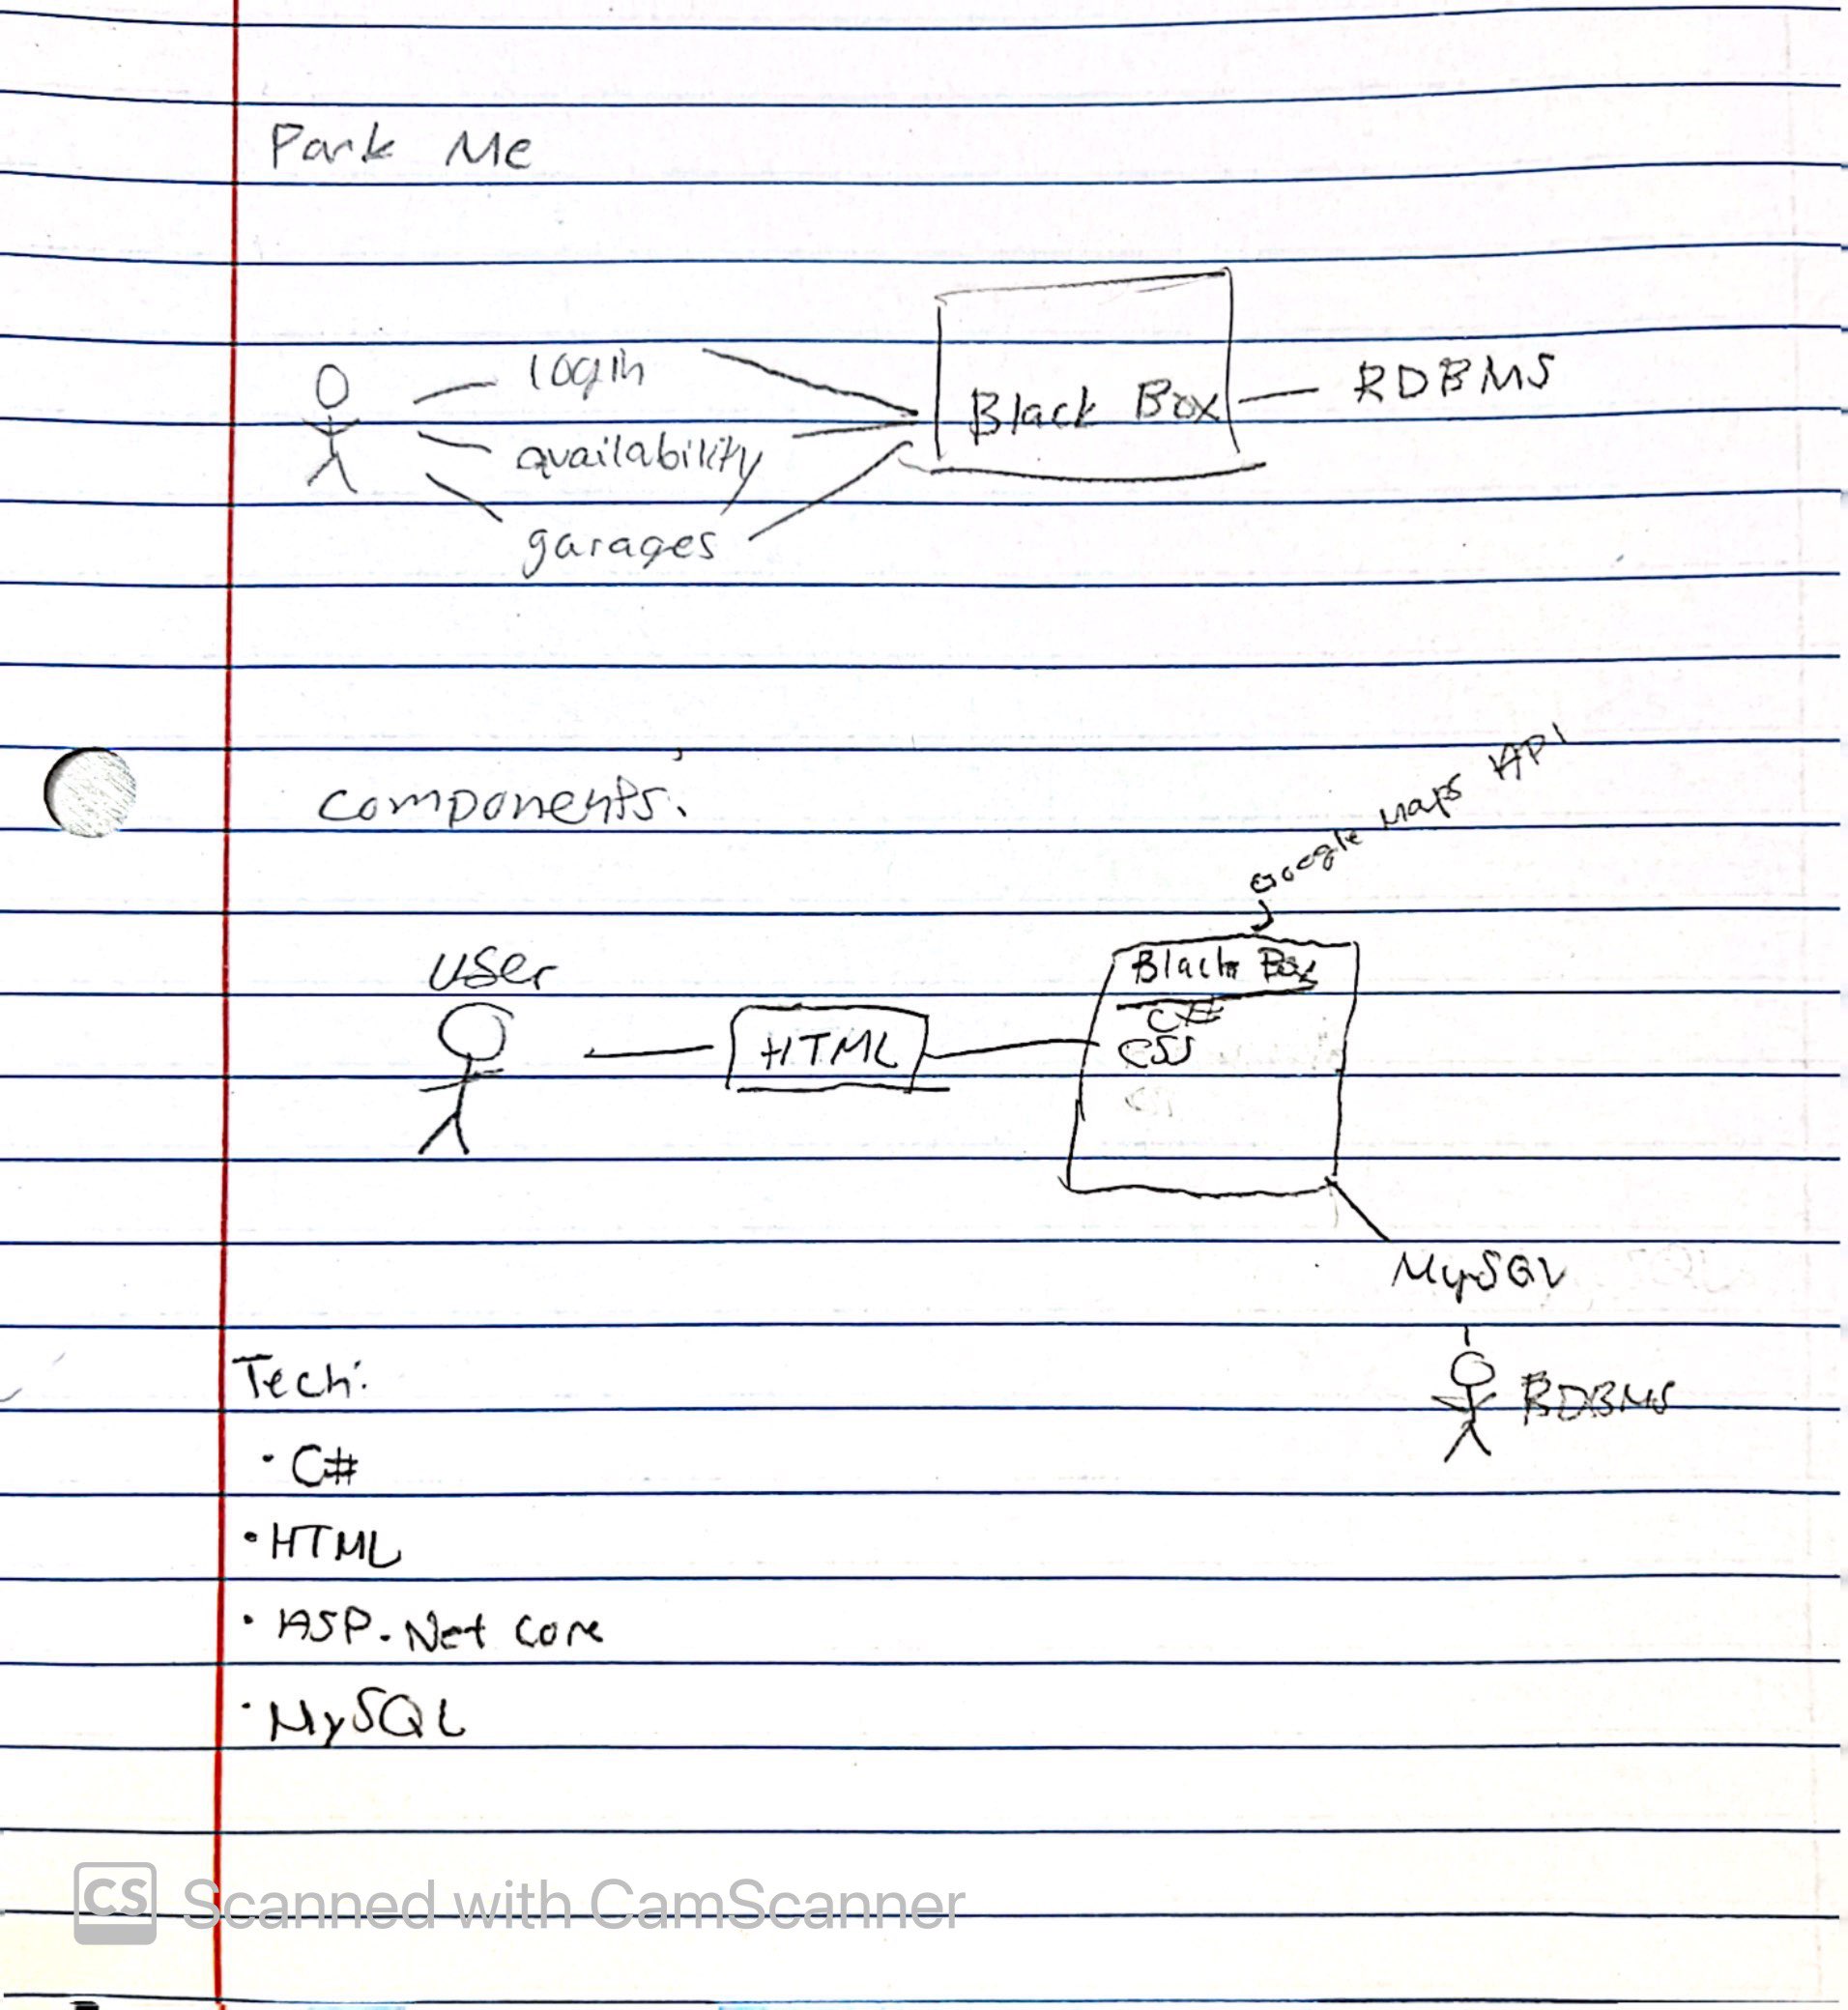 Park Me
login
availability
garages
Black Box
RDBMS
components:
Google Maps API
user
HTML
Black Box
C#
CSS
MySQL
RDBMS
Tech:
• C#
• HTML
• ASP.Net Core
• MySQL
CS Scanned with CamScanner